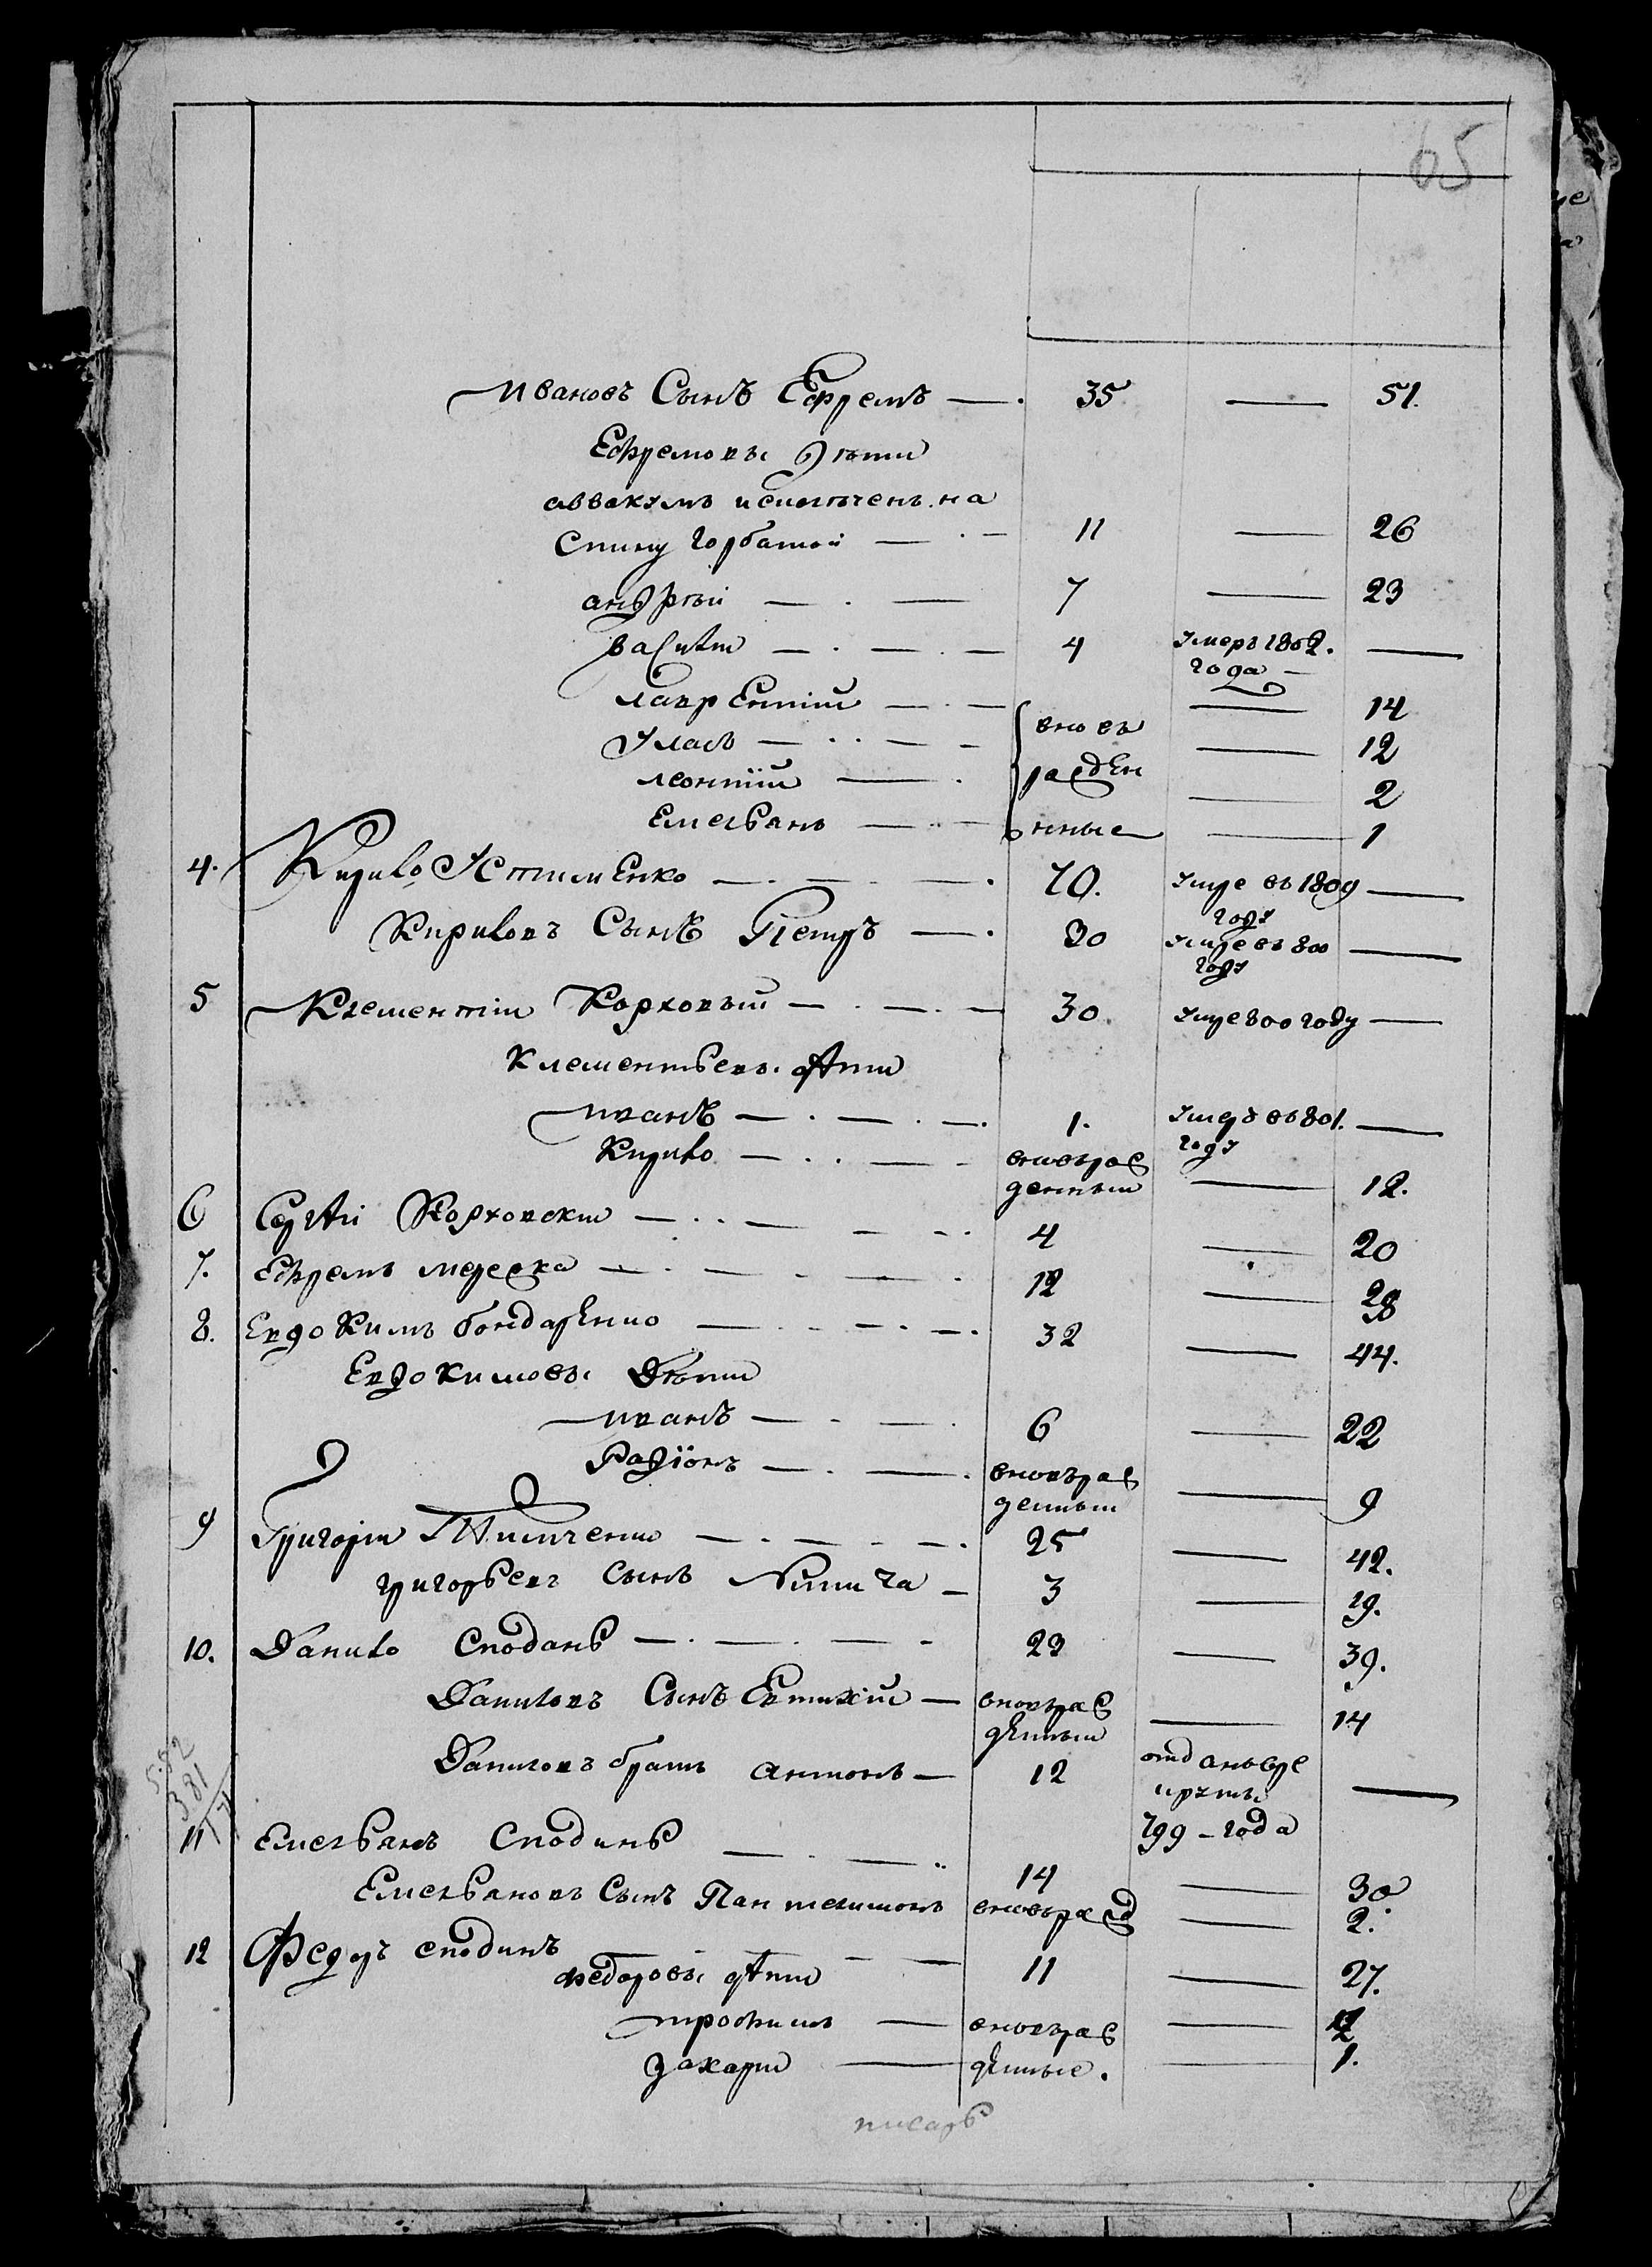 65
Ивановъ Сынъ Ефремъ — 35 — 51.
Ефремовы Дѣти
аввакумъ на
Спину Горбатой — 11 — 26
андрѣй — 7 — 23
Василѣй — 4 умеръ 1802. —
года
лаврентій — вновь — 14
Уласъ — 12
леонтїй — расден — 2
Емельянъ — нные — 1
4. Кирило Устименко — 70. умре въ 1809 —
году
Кириловъ Сынъ Петръ — 30 умре въ 800 —
году
5 Клементій Корховый — 30. умре 800 году —
Клементьевы дѣти
иванъ — 1. умеръ въ 801. —
году
Кирило — вновърас
денный — 12.
6 Сергѣй Корховски — 4 — 20
7. Ефремъ — 12 — 28
8. Евдокимъ бондаренко — 32 — 44.
Евдокимовы Дѣти
иванъ — 6 — 22
Радїонъ — вновърас
денный — 9
9 Григорій — 25 — 42.
григорьевъ сынъ Никита — 3 — 19.
10. Данило Сподинъ — 23 — 39.
Даниловъ Сынъ Евтихій — вновърас
денный — 14
Даниловъ братъ антонъ — 12 отданъ въ ре —
крѹты
799 – года
11 Емельянъ Сподинъ — 14 — 30
Емельяновъ Сынъ Пантелимонъ вновърасд — 2.
12 Федоръ сподинъ — 11 — 27.
федоровы дѣти
трофимъ — вновърас —
захари — денные. — 1.
писарь